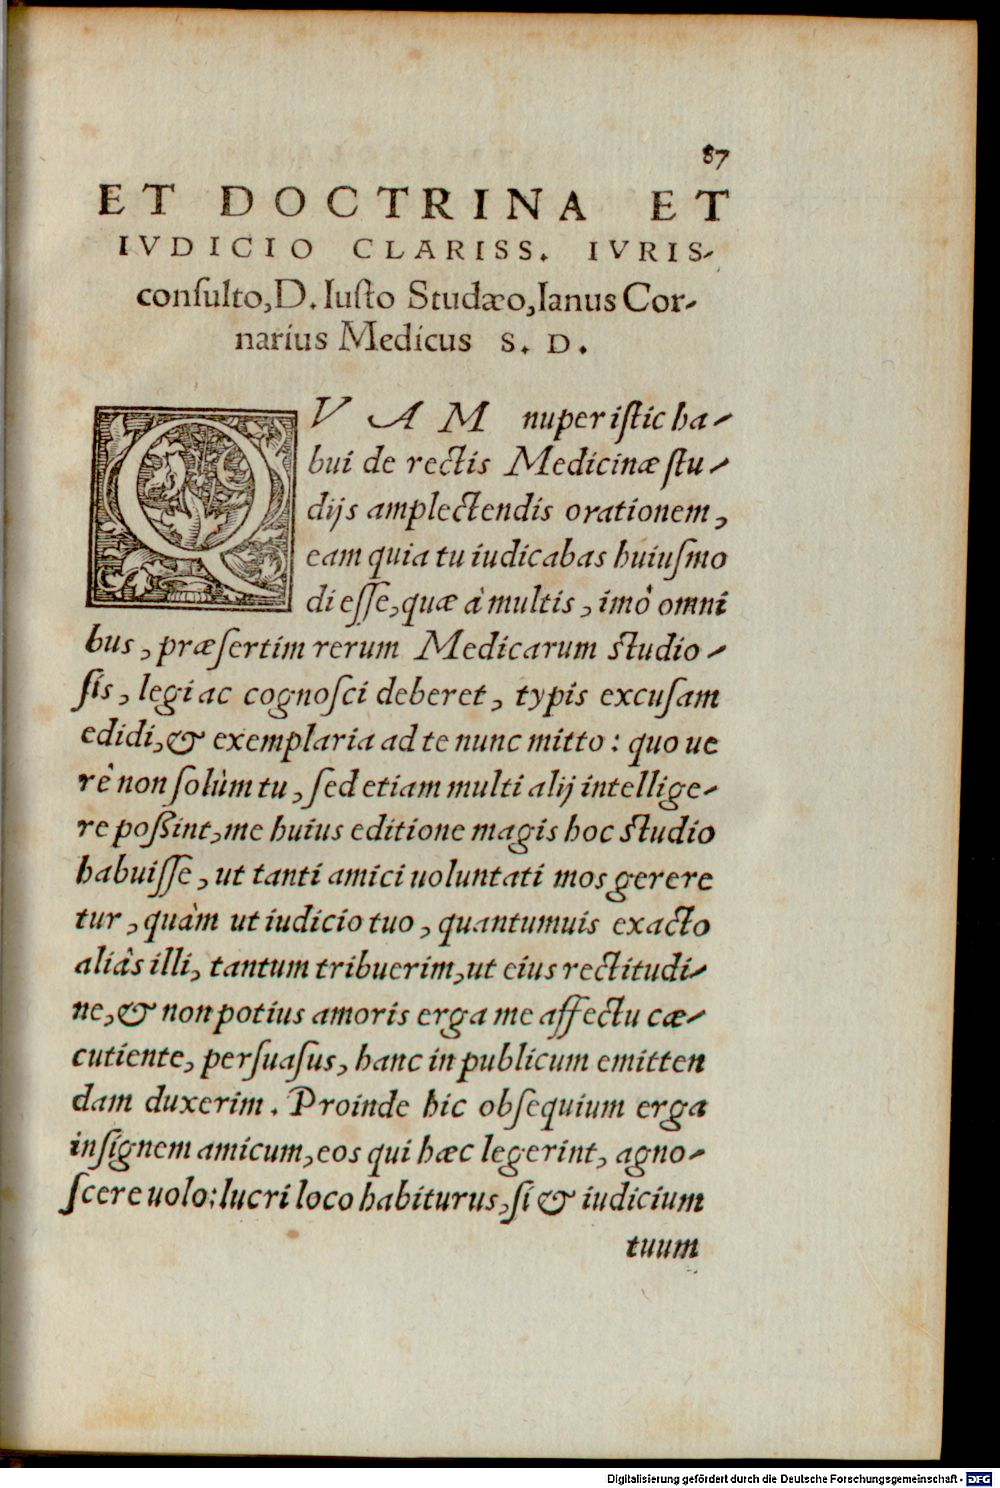 87
ET DOCTRINA ET
IVDICIO CLARISS. IVRIS-
conſulto, D. Iuſto Studæo, Ianus Cor-
narius Medicus S. D.
QVAM nuper iſtic ha-
bui de rectis Medicinæ ſtu-
dijs amplectendis orationem,
eam quia tu iudicabas huiuſmo
di eſſe, quæ à multis, imò omni
bus, præſertim rerum Medicarum ſtudio-
ſis, legi ac cognoſci deberet, typis excuſam
edidi, & exemplaria ad te nunc mitto: quo ue
rè non ſolùm tu, ſed etiam multi alij intellige-
re poßint, me huius editione magis hoc ſtudio
habuiſſe, ut tanti amici uoluntati mos gerere
tur, quàm ut iudicio tuo, quantumuis exacto
aliâs illi, tantum tribuerim, ut eius rectitudi-
ne, & non potius amoris erga me affectu cæ-
cutiente, perſuaſus, hanc in publicum emitten
dam duxerim. Proinde hic obſequium erga
inſignem amicum, eos qui hæc legerint, agno-
ſcere uolo: lucri loco habiturus, ſi & iudicium
tuum
Digitalisierung gefördert durch die Deutsche Forschungsgemeinschaft - DFG